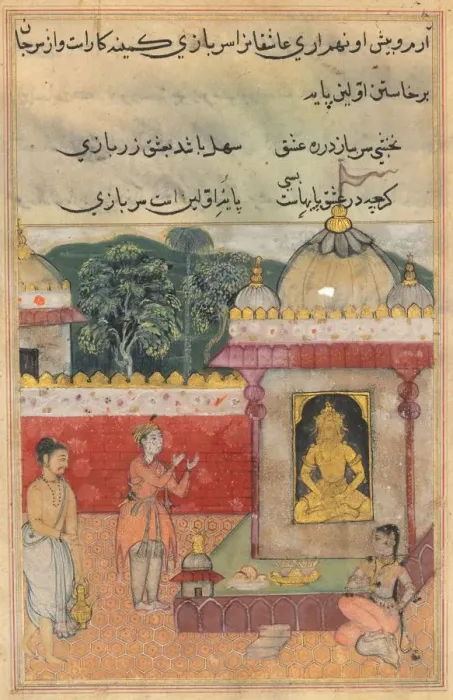 آرم و پیش او نهم آری عاشقانرا سربازی کمینه کار است و از سر جان
برخاستن اولین پایه
نخشبی سر بباز در ره عشق سهل باشد بعشق زر بازی
کرچه در عشق پایهاست بسی پایهٔ اولین است سربازی